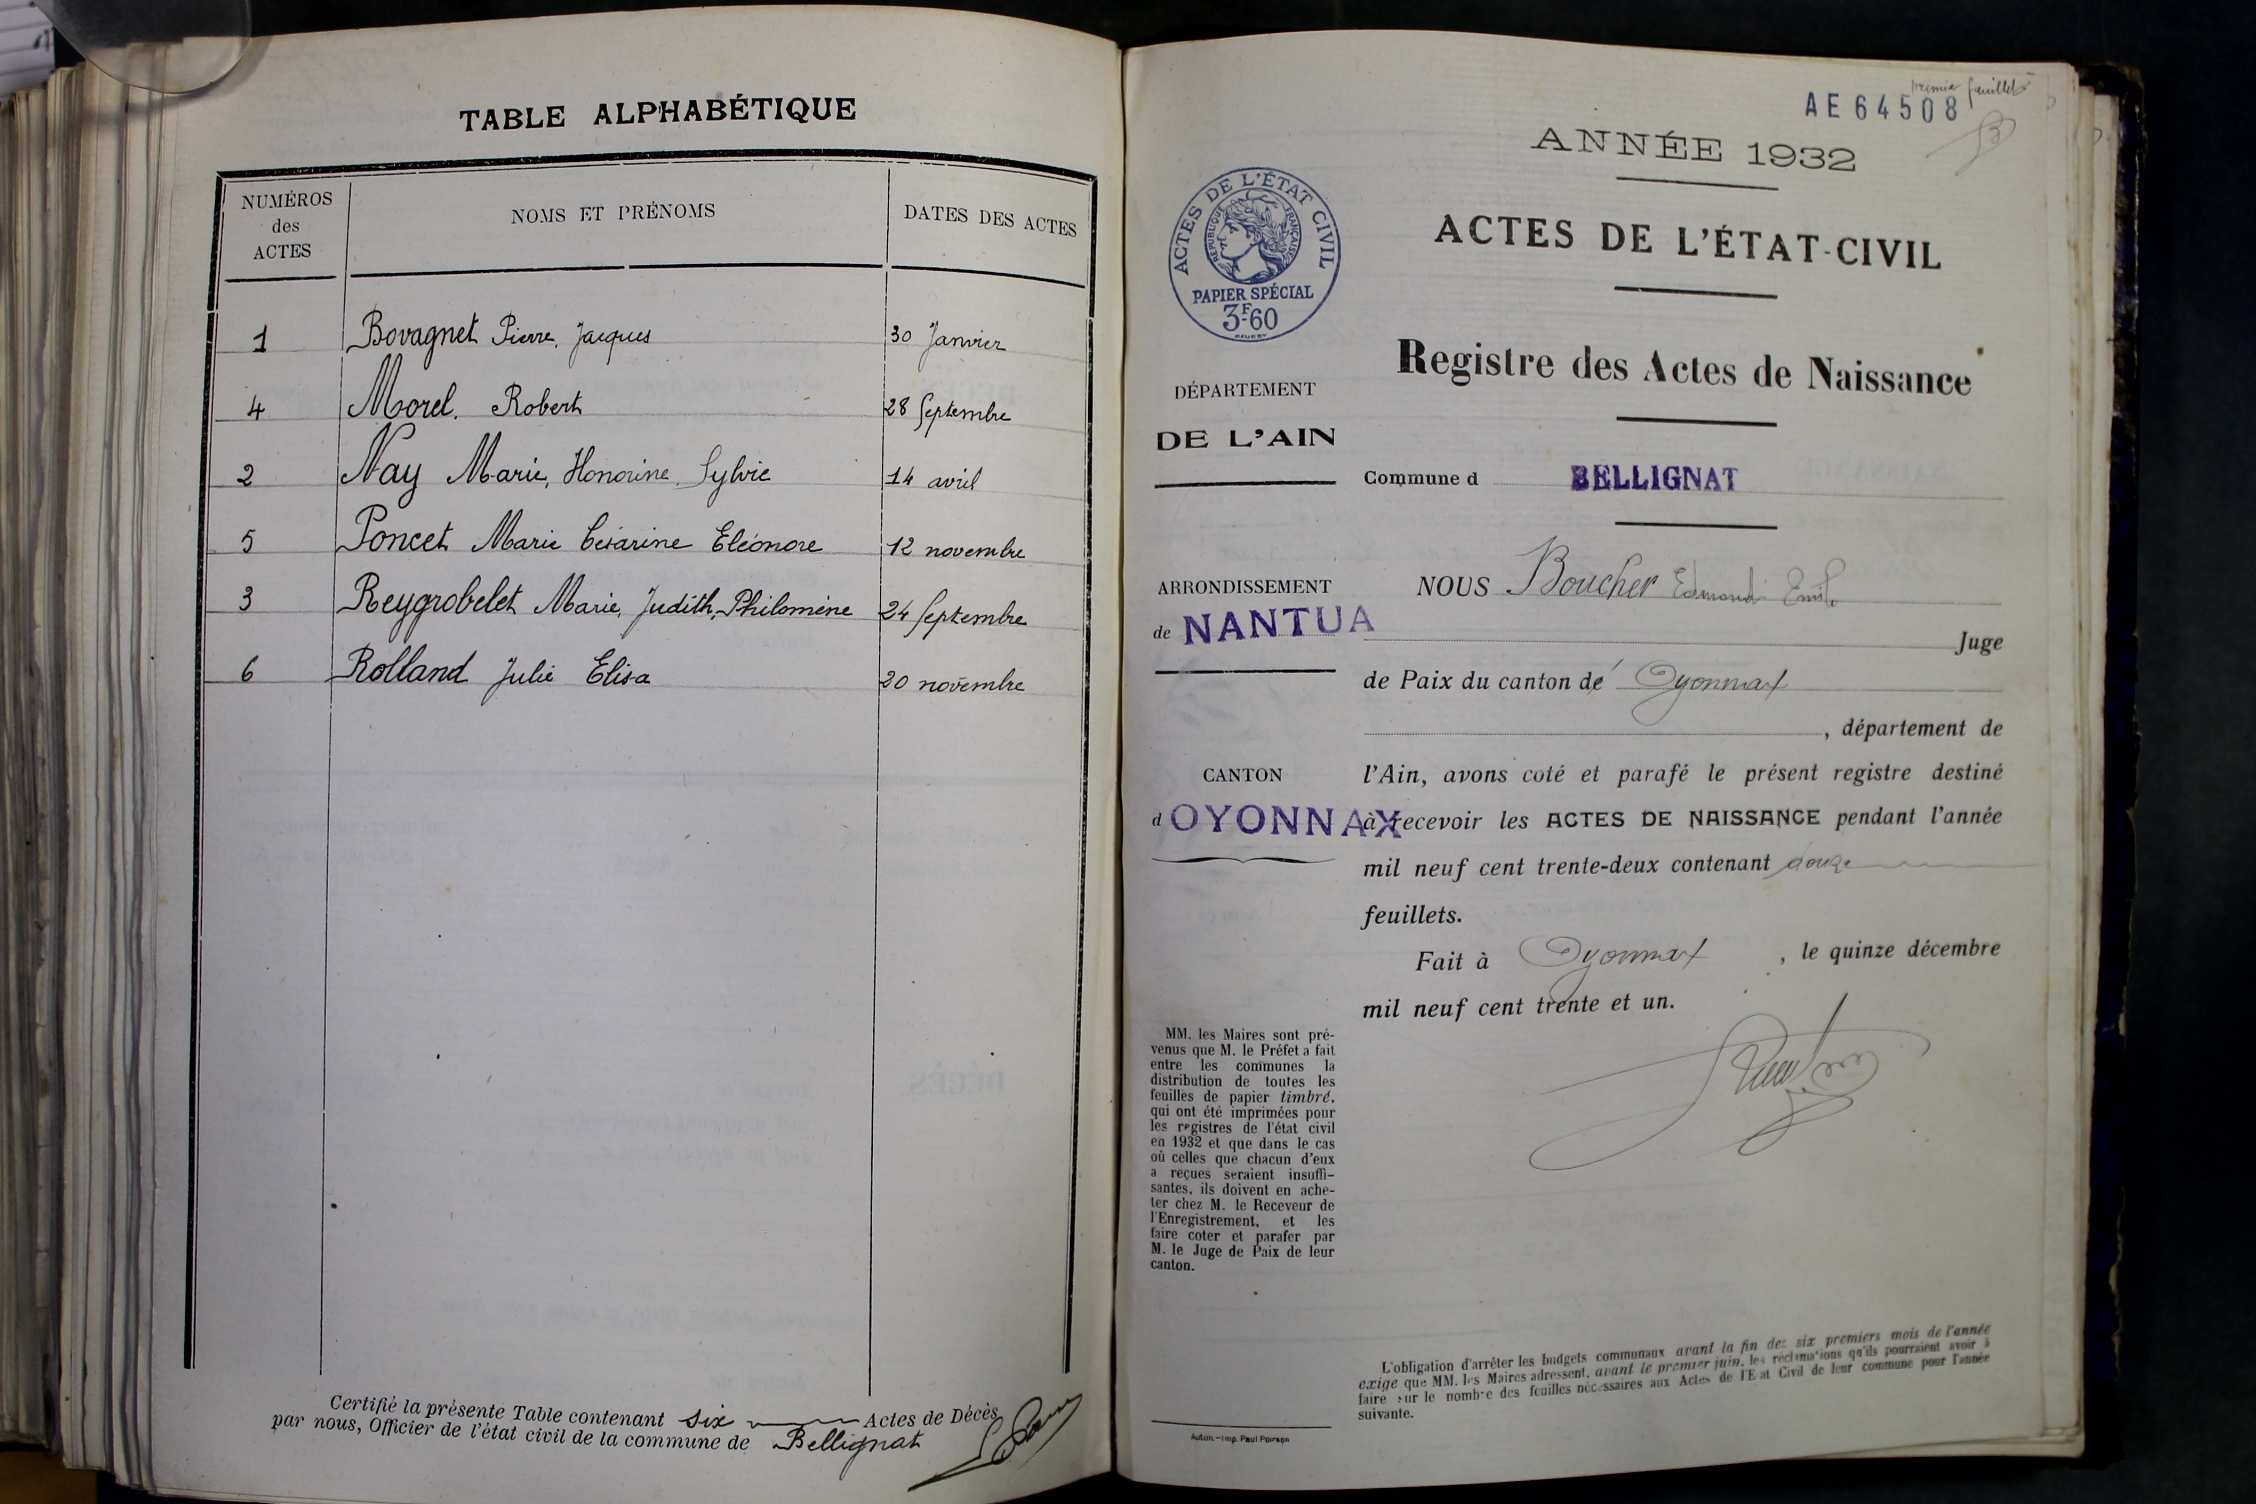 TABLE ALPHABÉTIQUE
NUMÉROS des ACTES
NOMS ET PRÉNOMS
DATES DES ACTES
1 Bovagnet Pierre, Jacques 30 Janvier
4 Morel. Robert 28 Septembre
2 Nay Marie, Honorine Sylvie 14 avril
5 Poncet Marie Césarine Eléonore 12 novembre
3 Reygrobelet Marie, Judith, Philomène 24 Septembre
6 Rolland Julie Elisa 20 novembre
Certifié la présente Table contenant six Actes de Décès
par nous, Officier de l'état civil de la commune de Bellignat
premier feuillet
AE 64508
ANNÉE 1932
ACTES DE L'ÉTAT CIVIL
RÉPUBLIQUE FRANÇAISE
PAPIER SPÉCIAL
3F-60
ACTES DE L'ÉTAT-CIVIL
Registre des Actes de Naissance
DÉPARTEMENT
DE L'AIN
Commune d BELLIGNAT
ARRONDISSEMENT
de NANTUA
CANTON
d OYONNAX
NOUS Boucher Edmond Emile
Juge
de Paix du canton de Oyonnax
, département de
l'Ain, avons coté et parafé le présent registre destiné
à recevoir les ACTES DE NAISSANCE pendant l'année
mil neuf cent trente-deux contenant douze
feuillets.
Fait à Oyonnax , le quinze décembre
mil neuf cent trente et un.
MM. les Maires sont pré-
venus que M. le Préfet a fait
entre les communes la
distribution de toutes les
feuilles de papier timbré,
qui ont été imprimées pour
les registres de l'état civil
en 1932 et que dans le cas
où celles que chacun d'eux
a reçues seraient insuffi-
santes, ils doivent en ache-
ter chez M. le Receveur de
l'Enregistrement, et les
faire coter et parafer par
M. le Juge de Paix de leur
canton.
Auton.-Imp. Paul Poirson
L'obligation d'arrêter les budgets communaux avant la fin des six premiers mois de l'année
exige que MM. les Maires adressent, avant le premier juin, les réclamations qu'ils pourraient avoir à
faire sur le nombre des feuilles nécessaires aux Actes de l'Etat Civil de leur commune pour l'année
suivante.